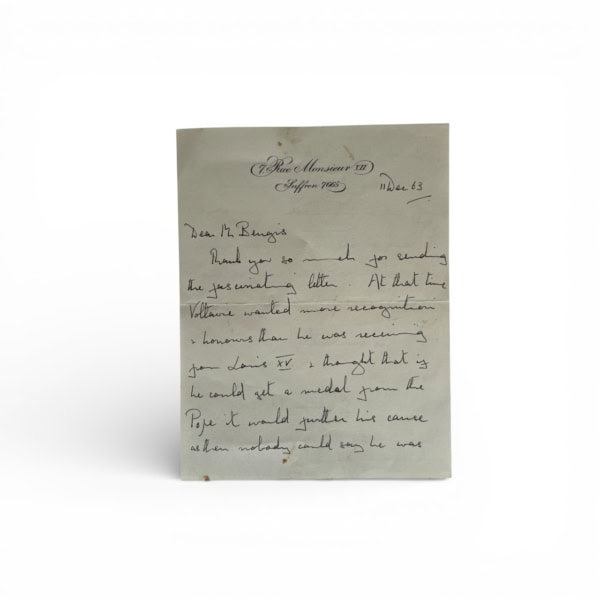 7, Rue Monsieur VII
Suffren 7665
11 Dec 63
Dear Mr Bengis
Thank you so much for sending
the fascinating letter. At that time
Voltaire wanted more recognition
& honours than he was receiving
from Louis XV & thought that if
he could get a medal from the
Pope it would further his cause
as then nobody could say he was